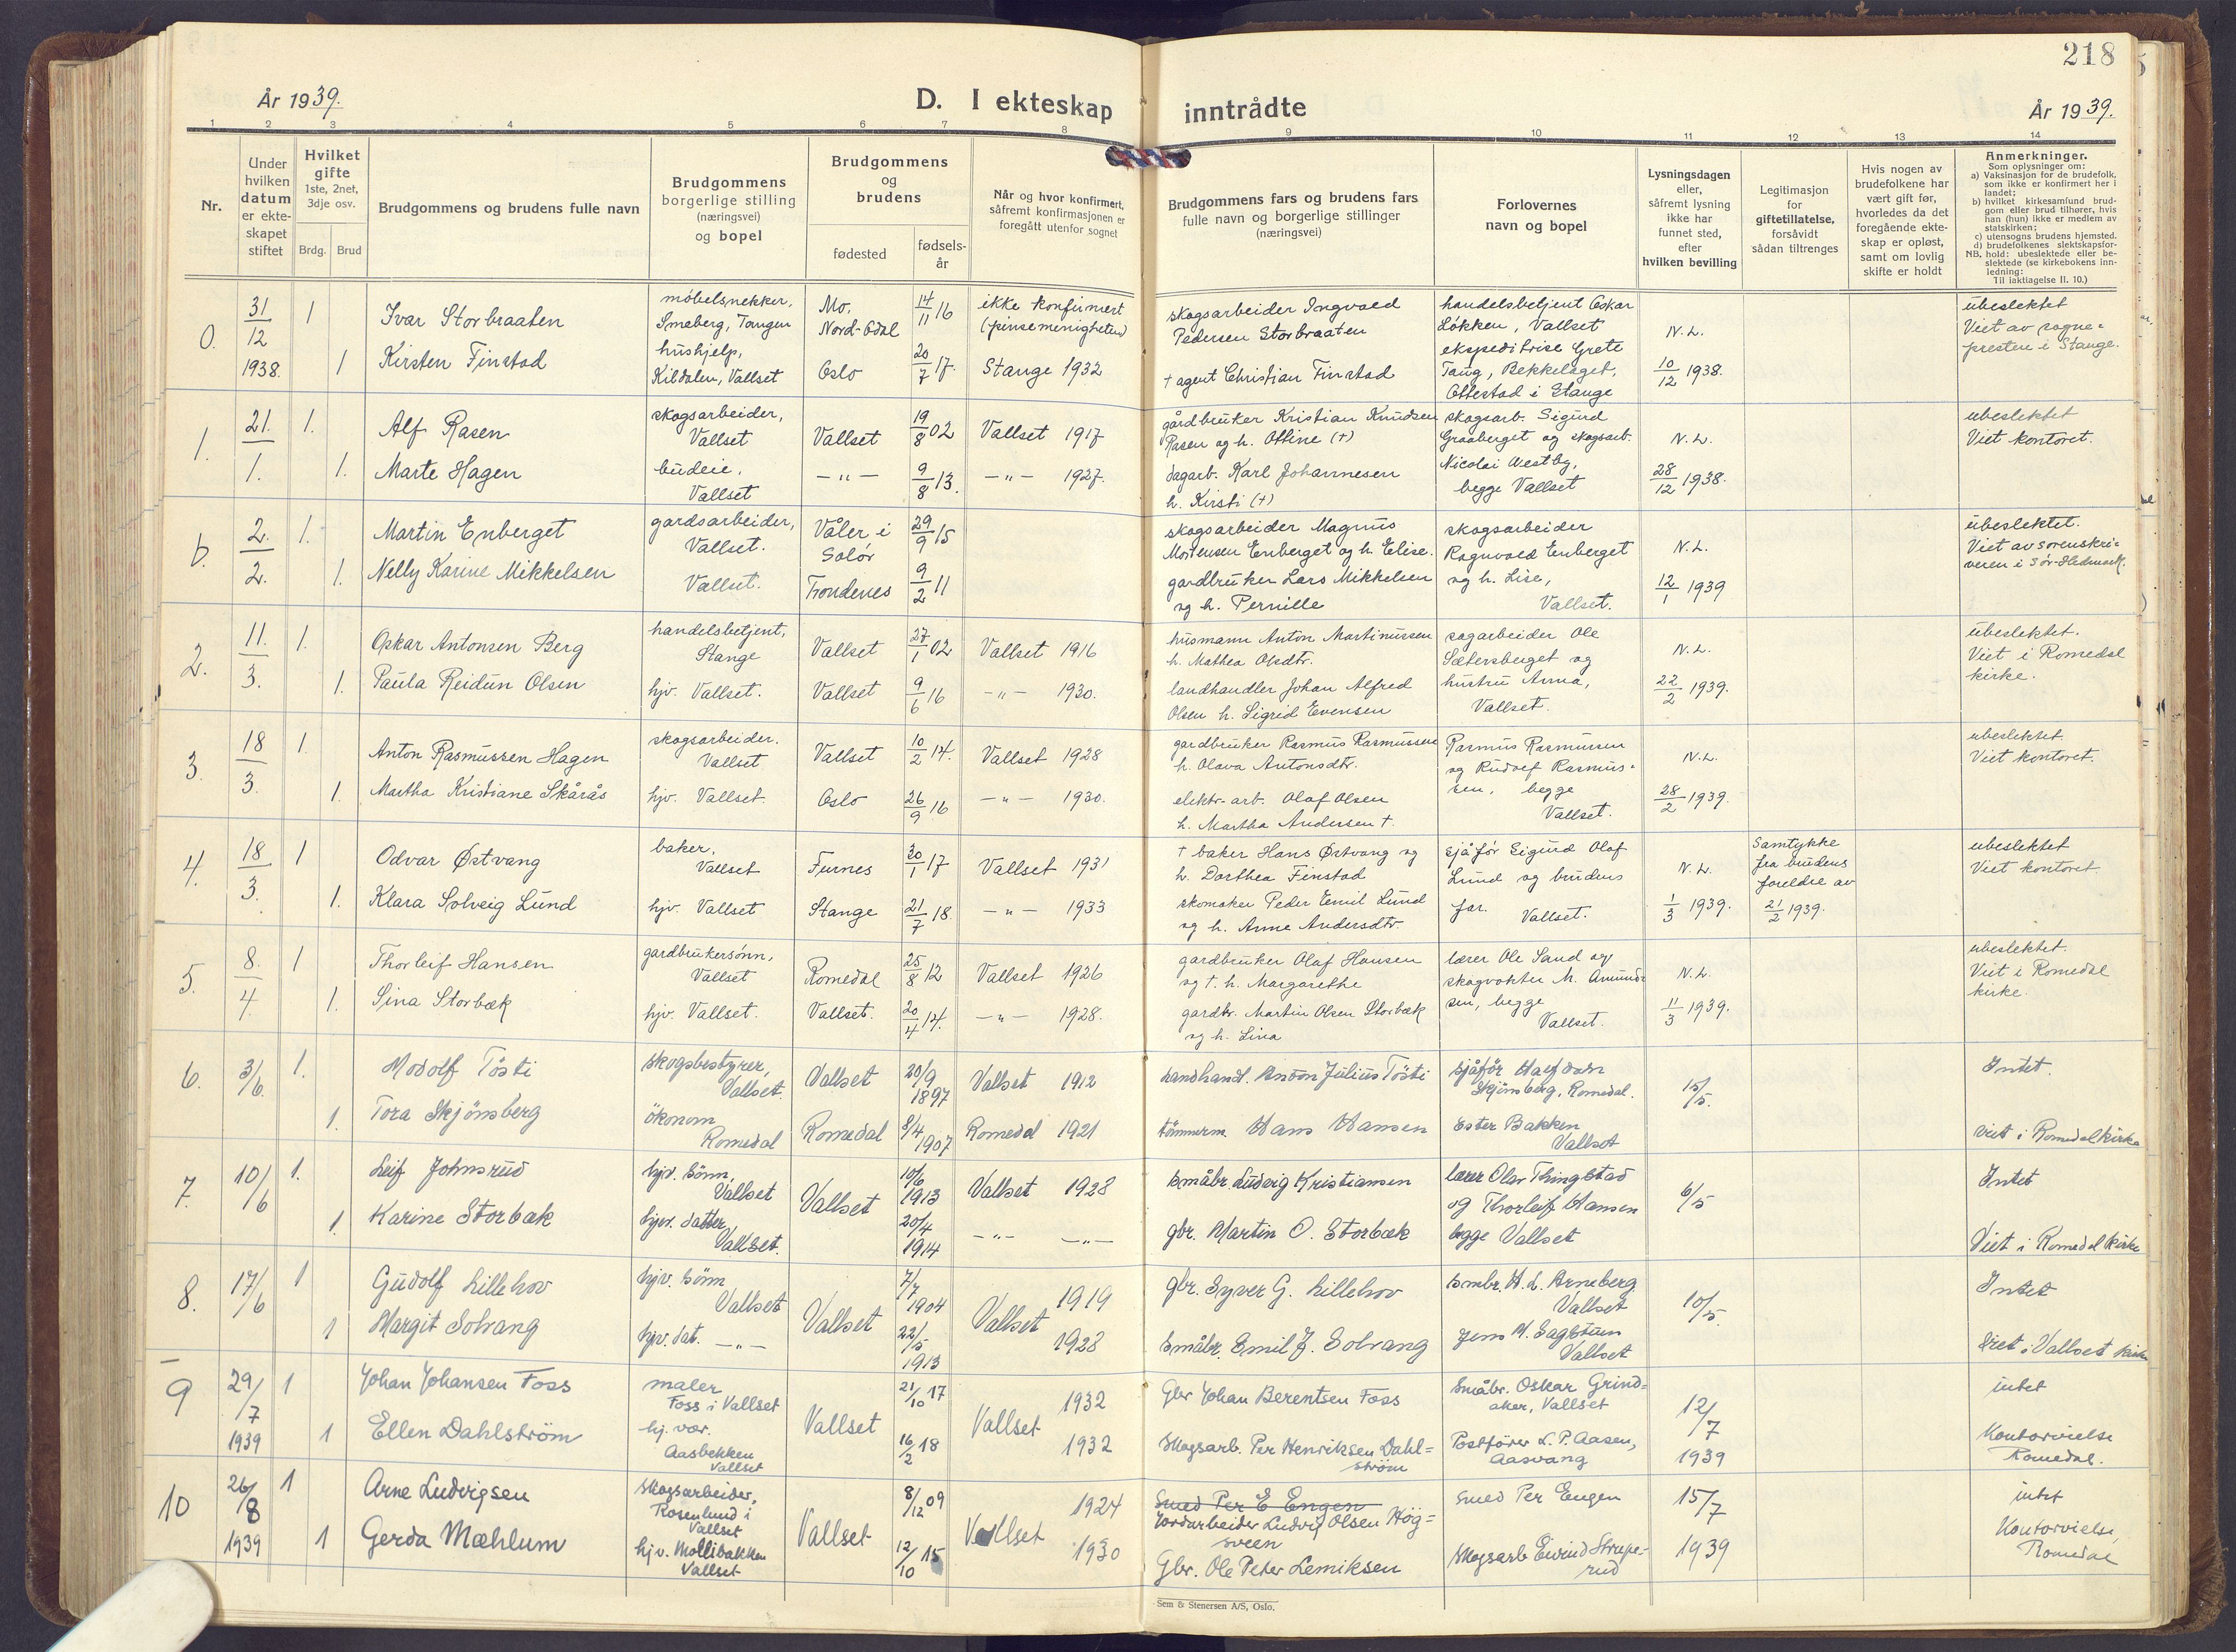 218
År 1939.
D. I ekteskap inntrådte
År 1939.
1 2 3 4 5 6 7 8 9 10 11 12 13 14
Nr.
Under hvilken datum er ekteskapet stiftet
Hvilket gifte 1ste, 2net, 3dje osv.
Brdg. Brud
Brudgommens og brudens fulle navn
Brudgommens borgerlige stilling (næringsvei) og bopel
Brudgommens og brudens
fødested
fødselsår
Når og hvor konfirmert, såfremt konfirmasjonen er foregått utenfor sognet
Brudgommens fars og brudens fars fulle navn og borgerlige stillinger (næringsvei)
Forlovernes navn og bopel
Lysningsdagen eller, såfremt lysning ikke har funnet sted, efter hvilken bevilling
Legitimasjon for giftetillatelse, forsåvidt sådan tiltrenges
Hvis nogen av brudefolkene har vært gift før, hvorledes da det foregående ekteskap er opløst, samt om lovlig skifte er holdt
Anmerkninger.
Som oplysninger om:
a) Vaksinasjon for de brudefolk, som ikke er konfirmert her i landet;
b) hvilket kirkesamfund brudgom eller brud tilhører, hvis han (hun) ikke er medlem av statskirken;
c) utensogns brudens hjemsted.
d) brudefolkenes slektskapsforhold: ubeslektede eller beslektede (se kirkebokens innledning:
NB.
Til iakttagelse II. 10.)
0. 31/12 1938. 1 Ivar Storbraaten møbelsnekker, Smeberg, Tangen Mo, Nord-Odal 14/11 16 ikke konfirmert (pinsemenigheten) skogsarbeider Ingvald Pedersen Storbraaten handelsbetjent Oskar Løkken, Vallset N.L. ubeslektet Viet av sogne-presten i Stange.
1 Kirsten Finstad hushjelp, Kildalen, Vallset Oslo 20/7 17. Stange 1932 + agent Christian Finstad ekspeditrise Grete Taug, Bekkelaget, Ottestad i Stange 10/12 1938.
1. 21./1. 1. Alf Rasen skogsarbeider, Vallset Vallset 19/8 02 Vallset 1917 gårdbruker Kristian Knudsen Rasen og h. Olline (+) skogsarb. Sigurd Graaberget og skogsarb. N.L. ubeslektet Viet kontoret.
1. Marte Hagen budeie, Vallset — " — 9/8 13. — " — 1927. dagarb. Karl Johannesen h. Kirsti (+) Nicolai Westby, begge Vallset 28/12 1938.
b. 2./2. 1. Martin Enberget gardsarbeider, Vallset. Våler i Solør 29/9 15 skogsarbeider Magnus Mortensen Enberget og h. Elise. skogsarbeider Ragnvald Enberget N.L. ubeslektet. Viet av sorenskri-veren i Sør-Hedmark.
1. Nelly Karine Mikkelsen Vallset. Trondenes 9/2 11 gardbruker Lars Mikkelsen og h. Pernille og h. Lise, Vallset. 12/1 1939
2. 11./3. 1. Oskar Antonsen Berg handelsbetjent, Stange Vallset 27/1 02 Vallset 1916 husmann Anton Martinussen h. Mathea Olsdtr. sagarbeider Ole Sætersberget og N.L. ubeslektet. Viet i Romedal kirke.
1. Paula Reidun Olsen hjv. Vallset. Vallset 9/6 16 — " — 1930. landhandler Johan Alfred Olsen h. Sigrid Evensen hustru Anna, Vallset. 22/2 1939.
3. 18/3. 1. Anton Rasmussen Hagen skogsarbeider. Vallset Vallset 10/2 14. Vallset 1928 gardbruker Rasmus Rasmussen h. Olava Antonsdtr. Rasmus Rasmussen og Rudolf Rasmus- N.L. ubeslektet Viet kontoret.
1. Martha Kristiane Skårås hjv. Vallset. Oslo 26/9 16 — " — 1930. elektr.-arb. Olaf Olsen h. Martha Andersen +. sen, begge Vallset. 28/2 1939.
4. 18/3. 1 Odvar Østvang baker, Vallset Furnes 30/1 17 Vallset 1931 + baker Hans Østvang og h. Dorthea Finstad sjåfør Sigurd Olaf Lund og brudens N.L. Samtykke fra brudens foreldre av 21/2 1939. ubeslektet Viet kontoret.
1. Klara Solveig Lund hjv. Vallset Stange 21/7 18. — " — 1933 skomaker Peder Emil Lund og h. Anne Andersdtr. far. Vallset. 1/3 1939.
5. 8./4. 1 Thorleif Hansen gardbrukersønn, Vallset Romedal 25/8 12 Vallset 1926 gardbruker Olaf Hansen og +. h. Margarethe lærer Ole Sand og skogvokter M. Amund- N.L. ubeslektet. Viet i Romedal kirke.
1. Sina Storbæk hjv. Vallset. Vallset. 20/4 14. — " — 1928. gardbr. Martin Olsen Storbæk og h. Lina sen, begge Vallset. 11/3 1939.
6. 3/6. 1. Modolf Tösti skogsbestyrer, Vallset. Vallset 20/9 1897 Vallset 1912 Landhandl. Anton Julius Tösti sjåför Halfdan Skjønsberg, Romedal. 15/5. Intet.
1. Tora Skjönsberg ökonom Romedal Romedal 8/4 1907 Romedal 1921 tömmerm. Hans Hansen Ester Bakken Vallset viet i Romedal kirke
7. 10/6 1. Leif Johnsrud hjv. sönn, Vallset Vallset 10/6 1913 Vallset 1928 småbr. Ludvig Kristiansen lærer Olav Thingstad og Thorleif Hansen 6/5 Intet
1 Karine Storbæk hjv. datter, Vallset. 20/4 1914 — " — — " — gbr. Martin O. Storbæk begge Vallset Viet i Romedal kirke
8. 17/6 1 Gudolf Lillehov hjv. sönn Vallset Vallset 7/7 1904 Vallset 1919 gbr. Syver G. Lillehov smbr. H. L. Arneberg Vallset 10/5. Intet
1 Margit Solvang hjv. dat. — " — 22/5 1913 1928 Småbr. Emil J. Solvang Jens M. Sagstuen Vallset Viet i Vallset kirke
9 29/7 1939 1 Johan Johansen Foss maler Foss i Vallset Vallset 21/10 17 Vallset 1932 Gbr Johan Berentsen Foss Småbr. Oskar Grind-aker, Vallset 12/7 1939 intet
1 Ellen Dahlström hj. vær. Aasbekken Vallset 16/2 18 1932 Skogsarb. Per Henriksen Dahl-ström Postförer L. P. Aasen, Aasvang Kontorvielse Romedal.
10 26/8 1939 1 Arne Ludvigsen Skogsarbeider, Rosenlund i Vallset Vallset 8/12 09 Vallset 1924 Smed Per E Engen Jordarbeider Ludvig Olsen Hög-sveen Smed Per Engen 15/7 1939 intet
1 Gerda Mæhlum hjv. Mollibakken Vallset 12/10 15 1930 Gbr. Ole Peter Lemiksen Skogsarb Eivind Struperud Kontorvielse, Romedal
Sem & Stenersen A/S, Oslo.